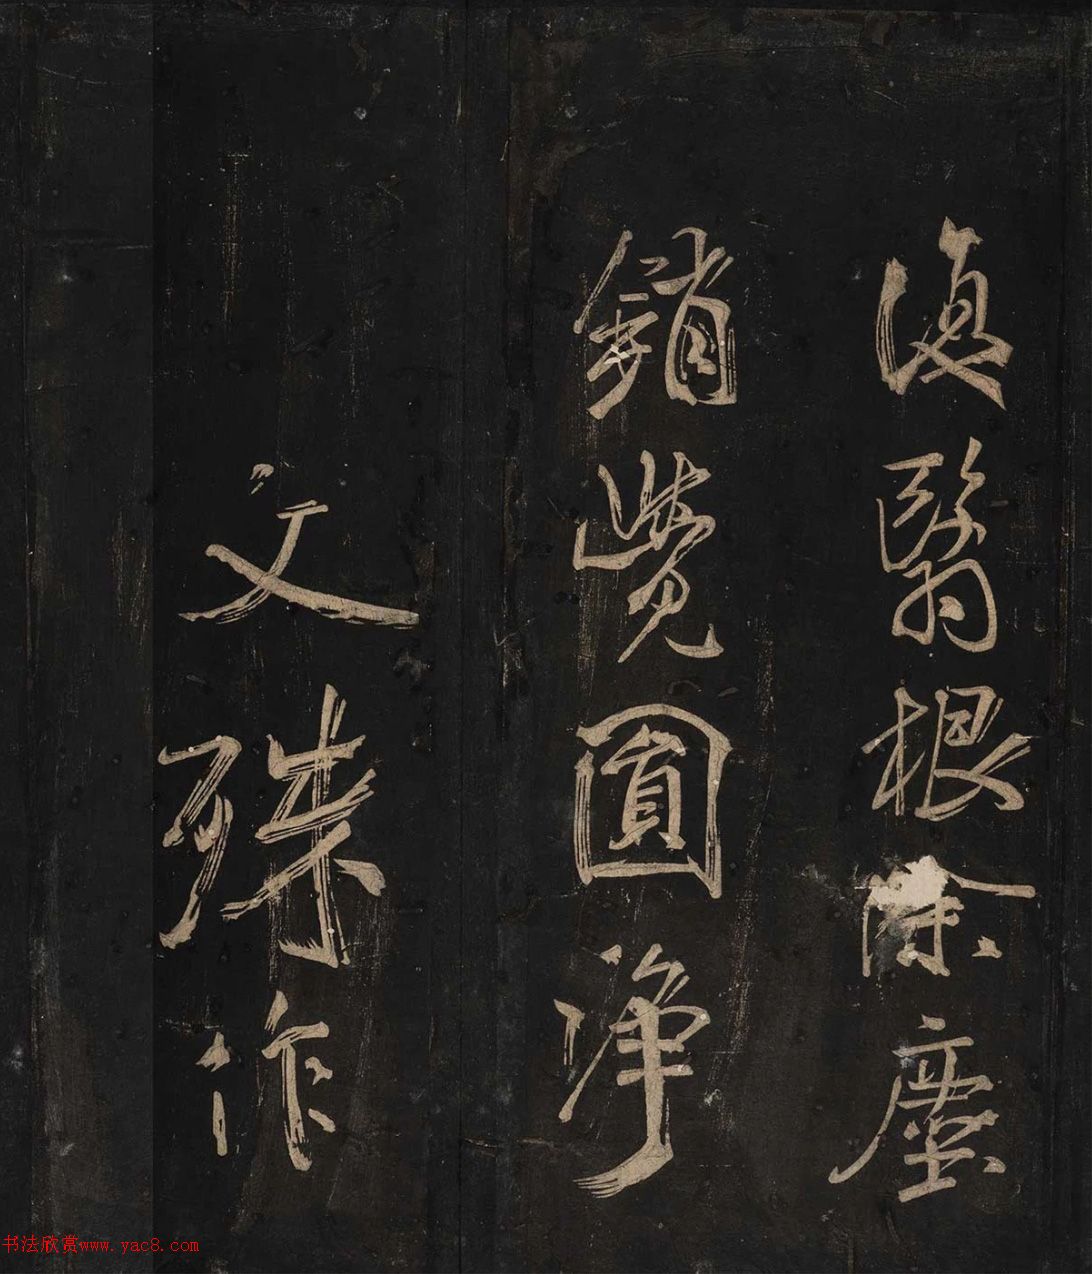 復翳根除塵
銷覺圓淨
文殊作
书法欣赏www.yac8.com